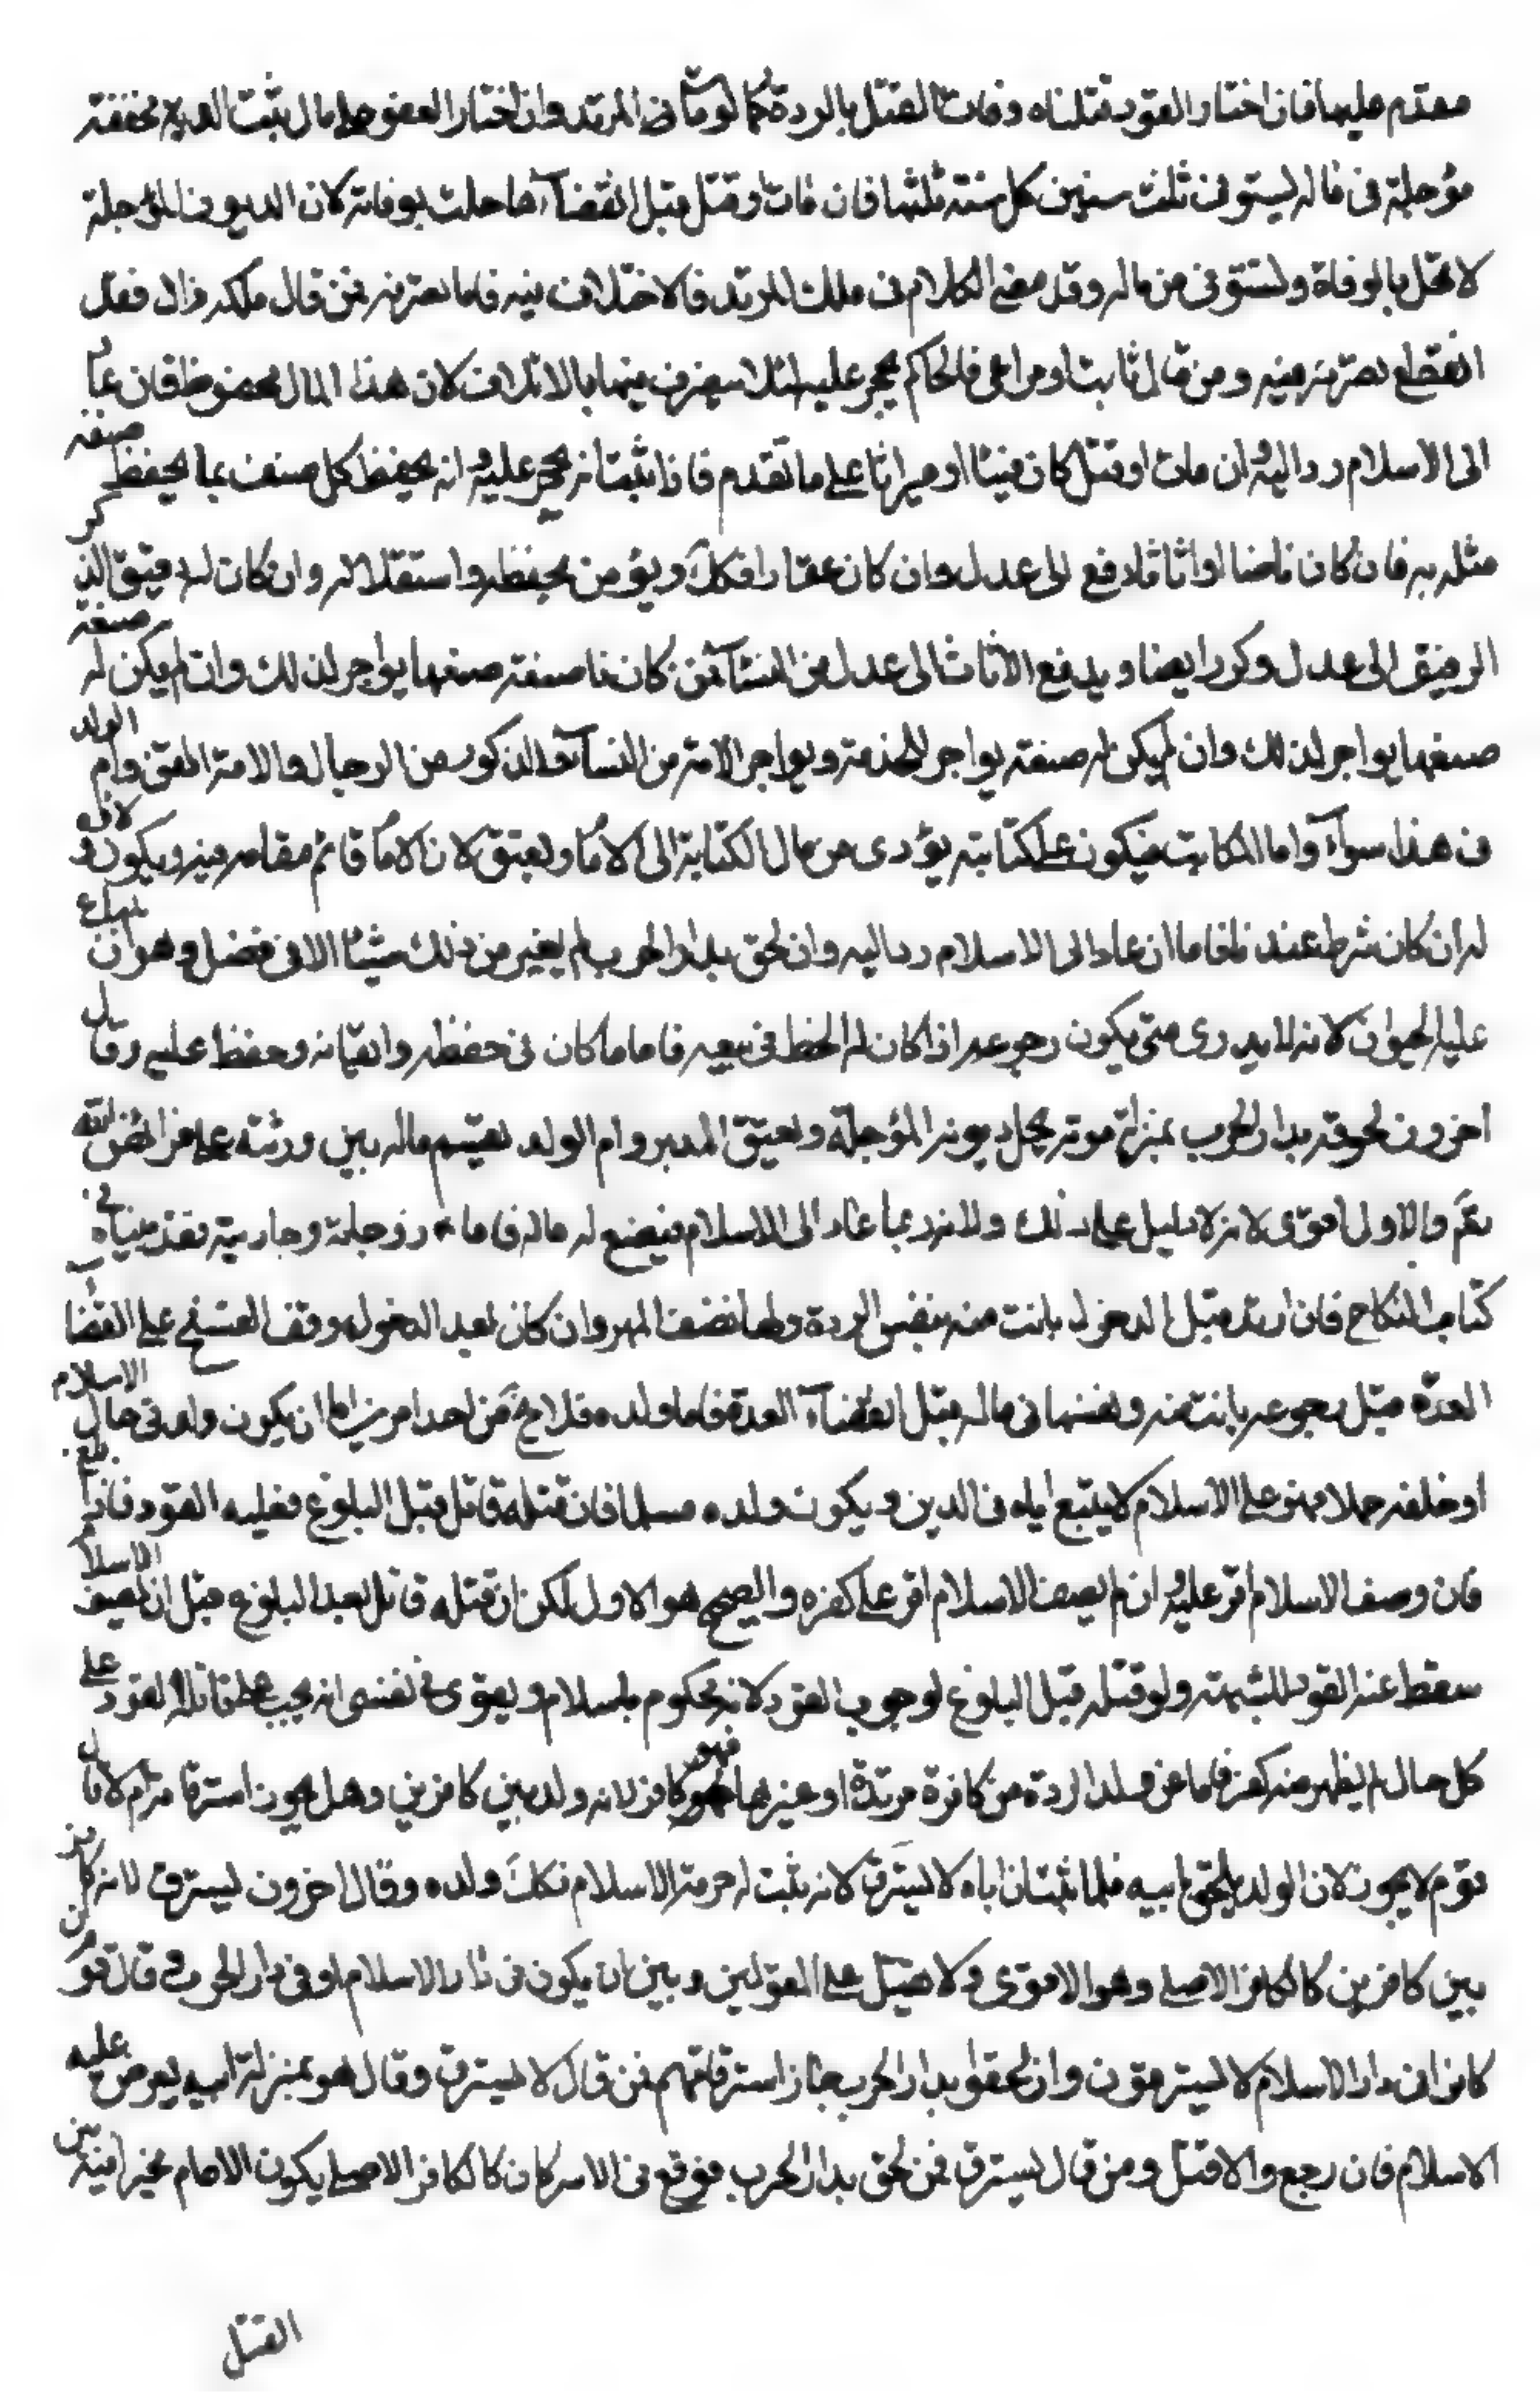 مقدم عليها فان اختار القود قتلناه وفات القتل بالردة كما لو مات المرتد وان اختار العفو على مال ثبت الدية مخففة
مؤجلة فى ماله يستوفى ثلث سنين كل سنة ثلثها فان مات او قتل قبل انقضآءها حلت بوفاته لان الديون المؤجلة
لا تحل بالوفاة ولتستوفى من ماله وقد مضى الكلام فى ملك المرتد فالاختلاف فيه فاما تصرفه فمن قال ملكه زال فقد
انقطع تصرفه فيه ومن قال ثابت او مراعى فالحاكم يحجر عليه لئلا يتصرف فيها بالاتلاف لان هذا المال محفوظ فان عاد
الى الاسلام رد اليه وان مات او قتل كان فيئا او ميراثا على ما تقدم فاذا ثبت انه يحجر عليه وانه يحفظ كل صنف بما يحفظ
مثله به فان كان ناضا او اثاثا دفع الى عدل وان كان عقارا فكك ويؤمن بحفظه واستقلاله وان كان له رقيق
الرقيق الى عدل ذكر ايضا ويدفع الاناث الى عدل من النسآء فمن كان ذا صنعة صنعها يواجر لذلك وان لم يكن له صنعة
صنعها يواجر لذلك وان لم يكن له صنعة يواجر للخدمة ويواجر الامة من النسآء والذكور من الرجال والامة القن وام الولد
فى هذا سوآء واما المكاتب فيكون على كتابته يؤدى من مال الكتابة الى الامام ويعتق لان الامام قائم مقامه فيه ويكون ولاؤه
له ان كان شرط عند فاما ان عاد الى الاسلام رد اليه وان لحق بدار الحرب لم يغير من ذلك شيئا الا فى فصل وهو ان يباع
عليه الحيوان لانه لا يدرى متى يكون رجوعه اذا كان له الحظ فى بيعه فاما ما كان فى حفظه وابقائه وحفظ عليه وقال
اخرون لحوقه بدار الحرب بمنزلة موته يحل ديونه المؤجلة ويعتق المدبر وام الولد يقسم ماله بين ورثته على فرائض الله
تعم والاول اقوى لانه لا دليل على ذلك ولانه ربما عاد الى الاسلام فيضيع له ماله فاما زوجته وجاريته فقد بيناه فى
كتاب النكاح فان ارتد قبل الدخول بانت منه بنفس الردة ولها نصف المهر وان كان بعد الدخول وقف الفسخ على انقضا
العدة قبل رجوعه بانت منه ونفقتها فى ماله قبل انقضآء العدة فاما ولده فلا يخ من احد امرين اما ان يكون ولد فى حال الاسلام
او خلفه حملا فهو على الاسلام لا يتبع اباه فى الدين ويكون ولده مسلما فان قتله قاتل قبل البلوغ فعليه القود فاذا بلغ
فان وصف الاسلام اقر عليه وان لم يصف الاسلام اقر على كفره والصحيح هو الاول لكن ان قتله قاتل بعد البلوغ قبل ان يصف الاسلام
سقط عنه القود للشبهة ولو قتله قبل البلوغ لوجوب القود لانه محكوم باسلام ويقوى فى نفسى انه يجب على قاتله القود على
كل حال لم يظهر منه كفر فاما من ولد الردة من كافرة مرتدة او غيرها فهو كافر لانه ولد بين كافرين وهل يجوز استرقاقه ام لا قال
قوم لا يجوز لان الولد يلحق بابيه فلما ثبت ان اباه لا يسترق لانه ثبت له حرمة الاسلام فكك ولده وقال اخرون يسترق لانه كافر
بين كافرين كالكافر الاصلى وهو الاقوى ولا فصل على القولين وبين ان يكون فى دار الاسلام او فى دار الحرب وقال قوم ان
كانوا فى دار الاسلام لا يسترقون وان لحقوا بدار الحرب جاز استرقاقهم فمن قال لا يسترق وقال هو بمنزلة ابيه يعرض عليه
الاسلام فان رجع والا قتل ومن قال يسترق فمن لحق بدار الحرب فوقع فى الاسر كان كالكافر الاصلى يكون الامام مخيرا فيه بين
القتل